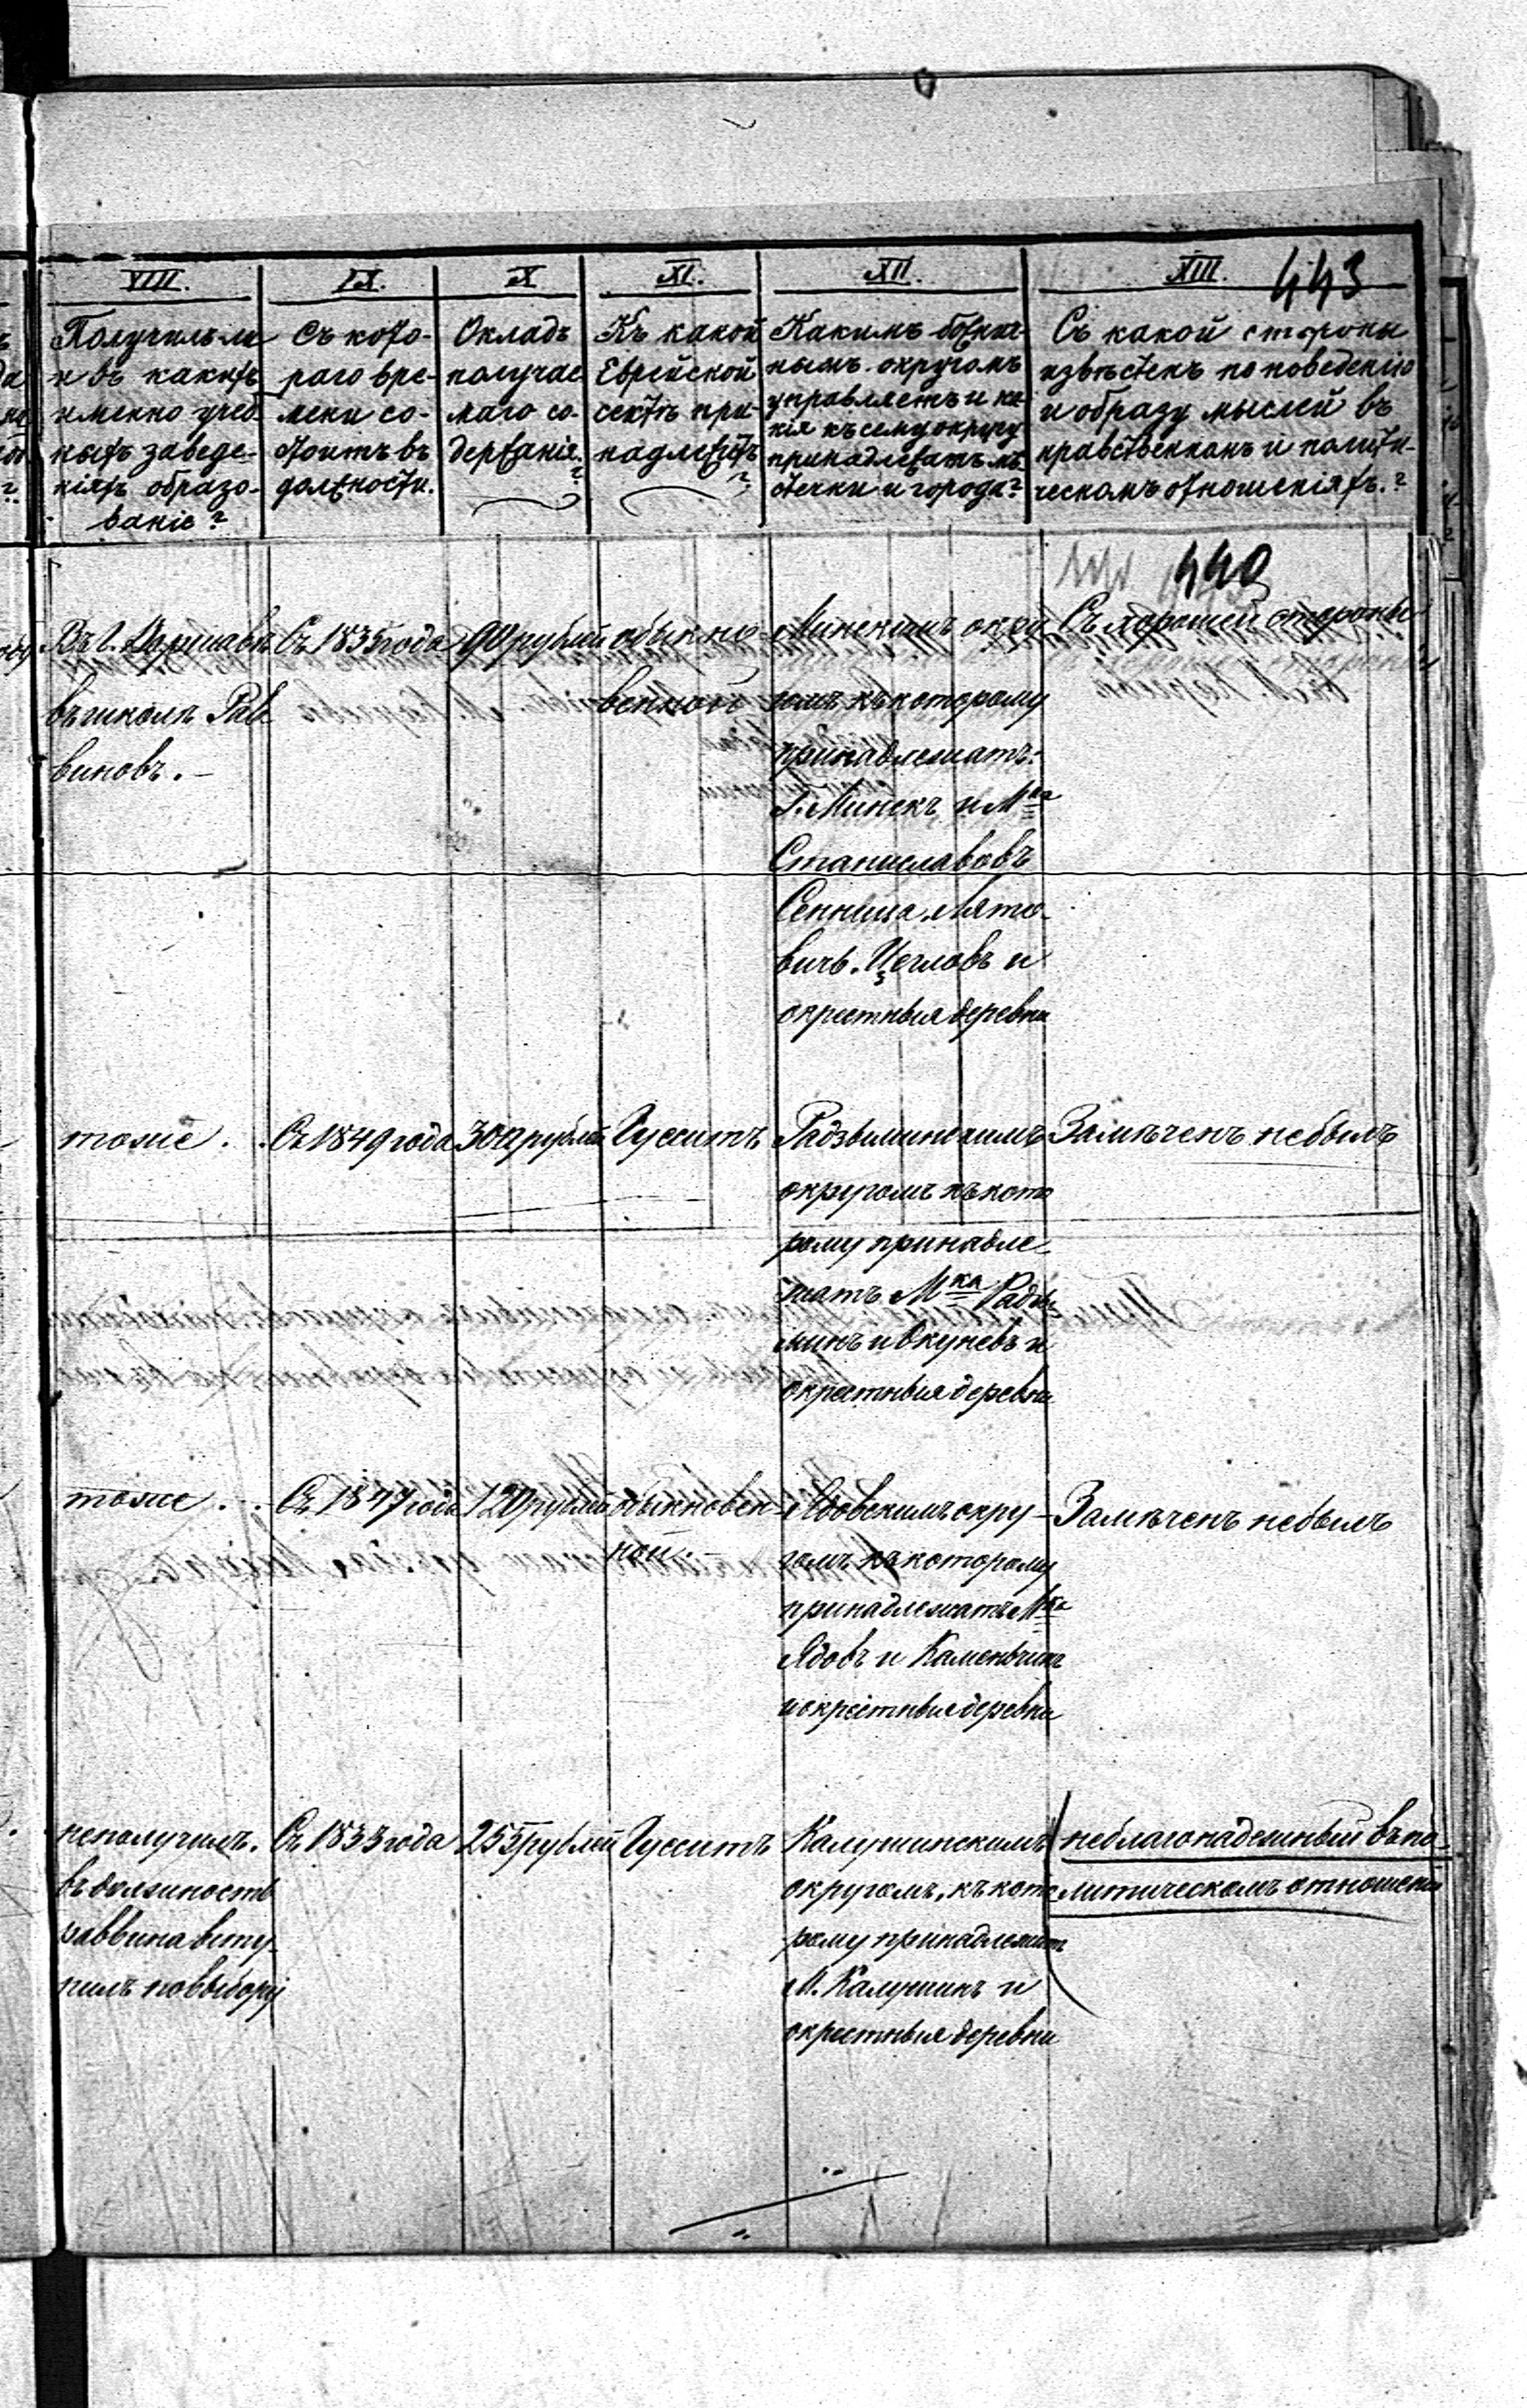 443
VIII.
Получилъ ли
и въ какихъ
именно учеб-
ныхъ заведе-
ніяхъ образо-
ваніе?
IX.
Съ кото-
раго вре-
мени со-
стоитъ въ
должности.
X
Окладъ
получае
маго со-
держанія.
?
XI.
Къ какой
Еврейской
сектѣ при-
надлежитъ
?
XII.
Какимъ божнич-
нымъ округомъ
управляетъ и ка-
кія къ сему округу
принадлежатъ мѣ-
стечки и города?
XIII.
Съ какой стороны
извѣстенъ по поведенію
и образу мыслей въ
нравственномъ и полити-
ческомъ отношеніяхъ.?
440
Въ г. Варшавѣ
въ школѣ Рав
виновъ.-
Съ 1835 года
90 рублей
обыкно-
венной
Минскимъ окру
гомъ къ которому
принадлежатъ:
г. Минскъ и Мка
Станиславовъ
Сенница, Лято-
вичъ. Цегловъ и
окрестныя деревни
Съ хорошей стороны
тоже.
Съ 1849 года
300 рублей
Гусситъ
Радзыминскимъ
округомъ къ кото
рому принадле-
жатъ Мка Радзы
минъ и Окуневъ и
окрестныя деревни
Замѣченъ не былъ
тоже.
Съ 1847 года
120 рублей
обыкновен-
ной.-
Ядовскимъ окру-
гомъ къ которому
принадлежатъ Мка
Ядовъ и Каменчикъ
и окрестныя деревни
Замѣченъ не былъ
неполучилъ.
въ должность
раввина всту-
пилъ по выбору
Съ 1833 года
255 рублей
Гусситъ
Калушинскимъ
округомъ, къ кото
рому принадлежит
М. Калушинъ и
окрестныя деревни
неблагонадежный въ по-
литическомъ отношеніи